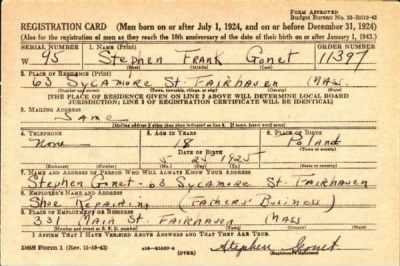 FORM APPROVED
REGISTRATION CARD (Men born on or after July 1, 1924, and on or before December 31, 1924)
(Also for the registration of men as they reach the 18th anniversary of the date of their birth on or after January 1, 1943.)
SERIAL NUMBER 1. NAME (Print) ORDER NUMBER
W 95 Stephen Frank Gonet 11397
(First) (Middle) (Last)
2. PLACE OF RESIDENCE (Print)
63 Sycamore St. Fairhaven Mass.
(Number and street) (Town, township, village, or city) (County) (State)
[THE PLACE OF RESIDENCE GIVEN ON LINE 2 ABOVE WILL DETERMINE LOCAL BOARD
JURISDICTION; LINE 2 OF REGISTRATION CERTIFICATE WILL BE IDENTICAL]
3. MAILING ADDRESS
Same
[Mailing address if other than place indicated on line 2. If same, insert word same]
4. TELEPHONE 5. AGE IN YEARS 6. PLACE OF BIRTH
None 18 Poland
DATE OF BIRTH
5 25 1925
(Exchange) (Number) (Mo.) (Day) (Yr.) (State or country)
7. NAME AND ADDRESS OF PERSON WHO WILL ALWAYS KNOW YOUR ADDRESS
Stephen Gonet - 63 Sycamore St. Fairhaven
8. EMPLOYER'S NAME AND ADDRESS
Shoe Repairing (Fathers' Business)
9. PLACE OF EMPLOYMENT OR BUSINESS
331 Main St. Fairhaven Mass
(Number and street or R. F. D. number) (Town) (County) (State)
I AFFIRM THAT I HAVE VERIFIED ABOVE ANSWERS AND THAT THEY ARE TRUE.
DSS Form 1 (OVER) Stephen Gonet